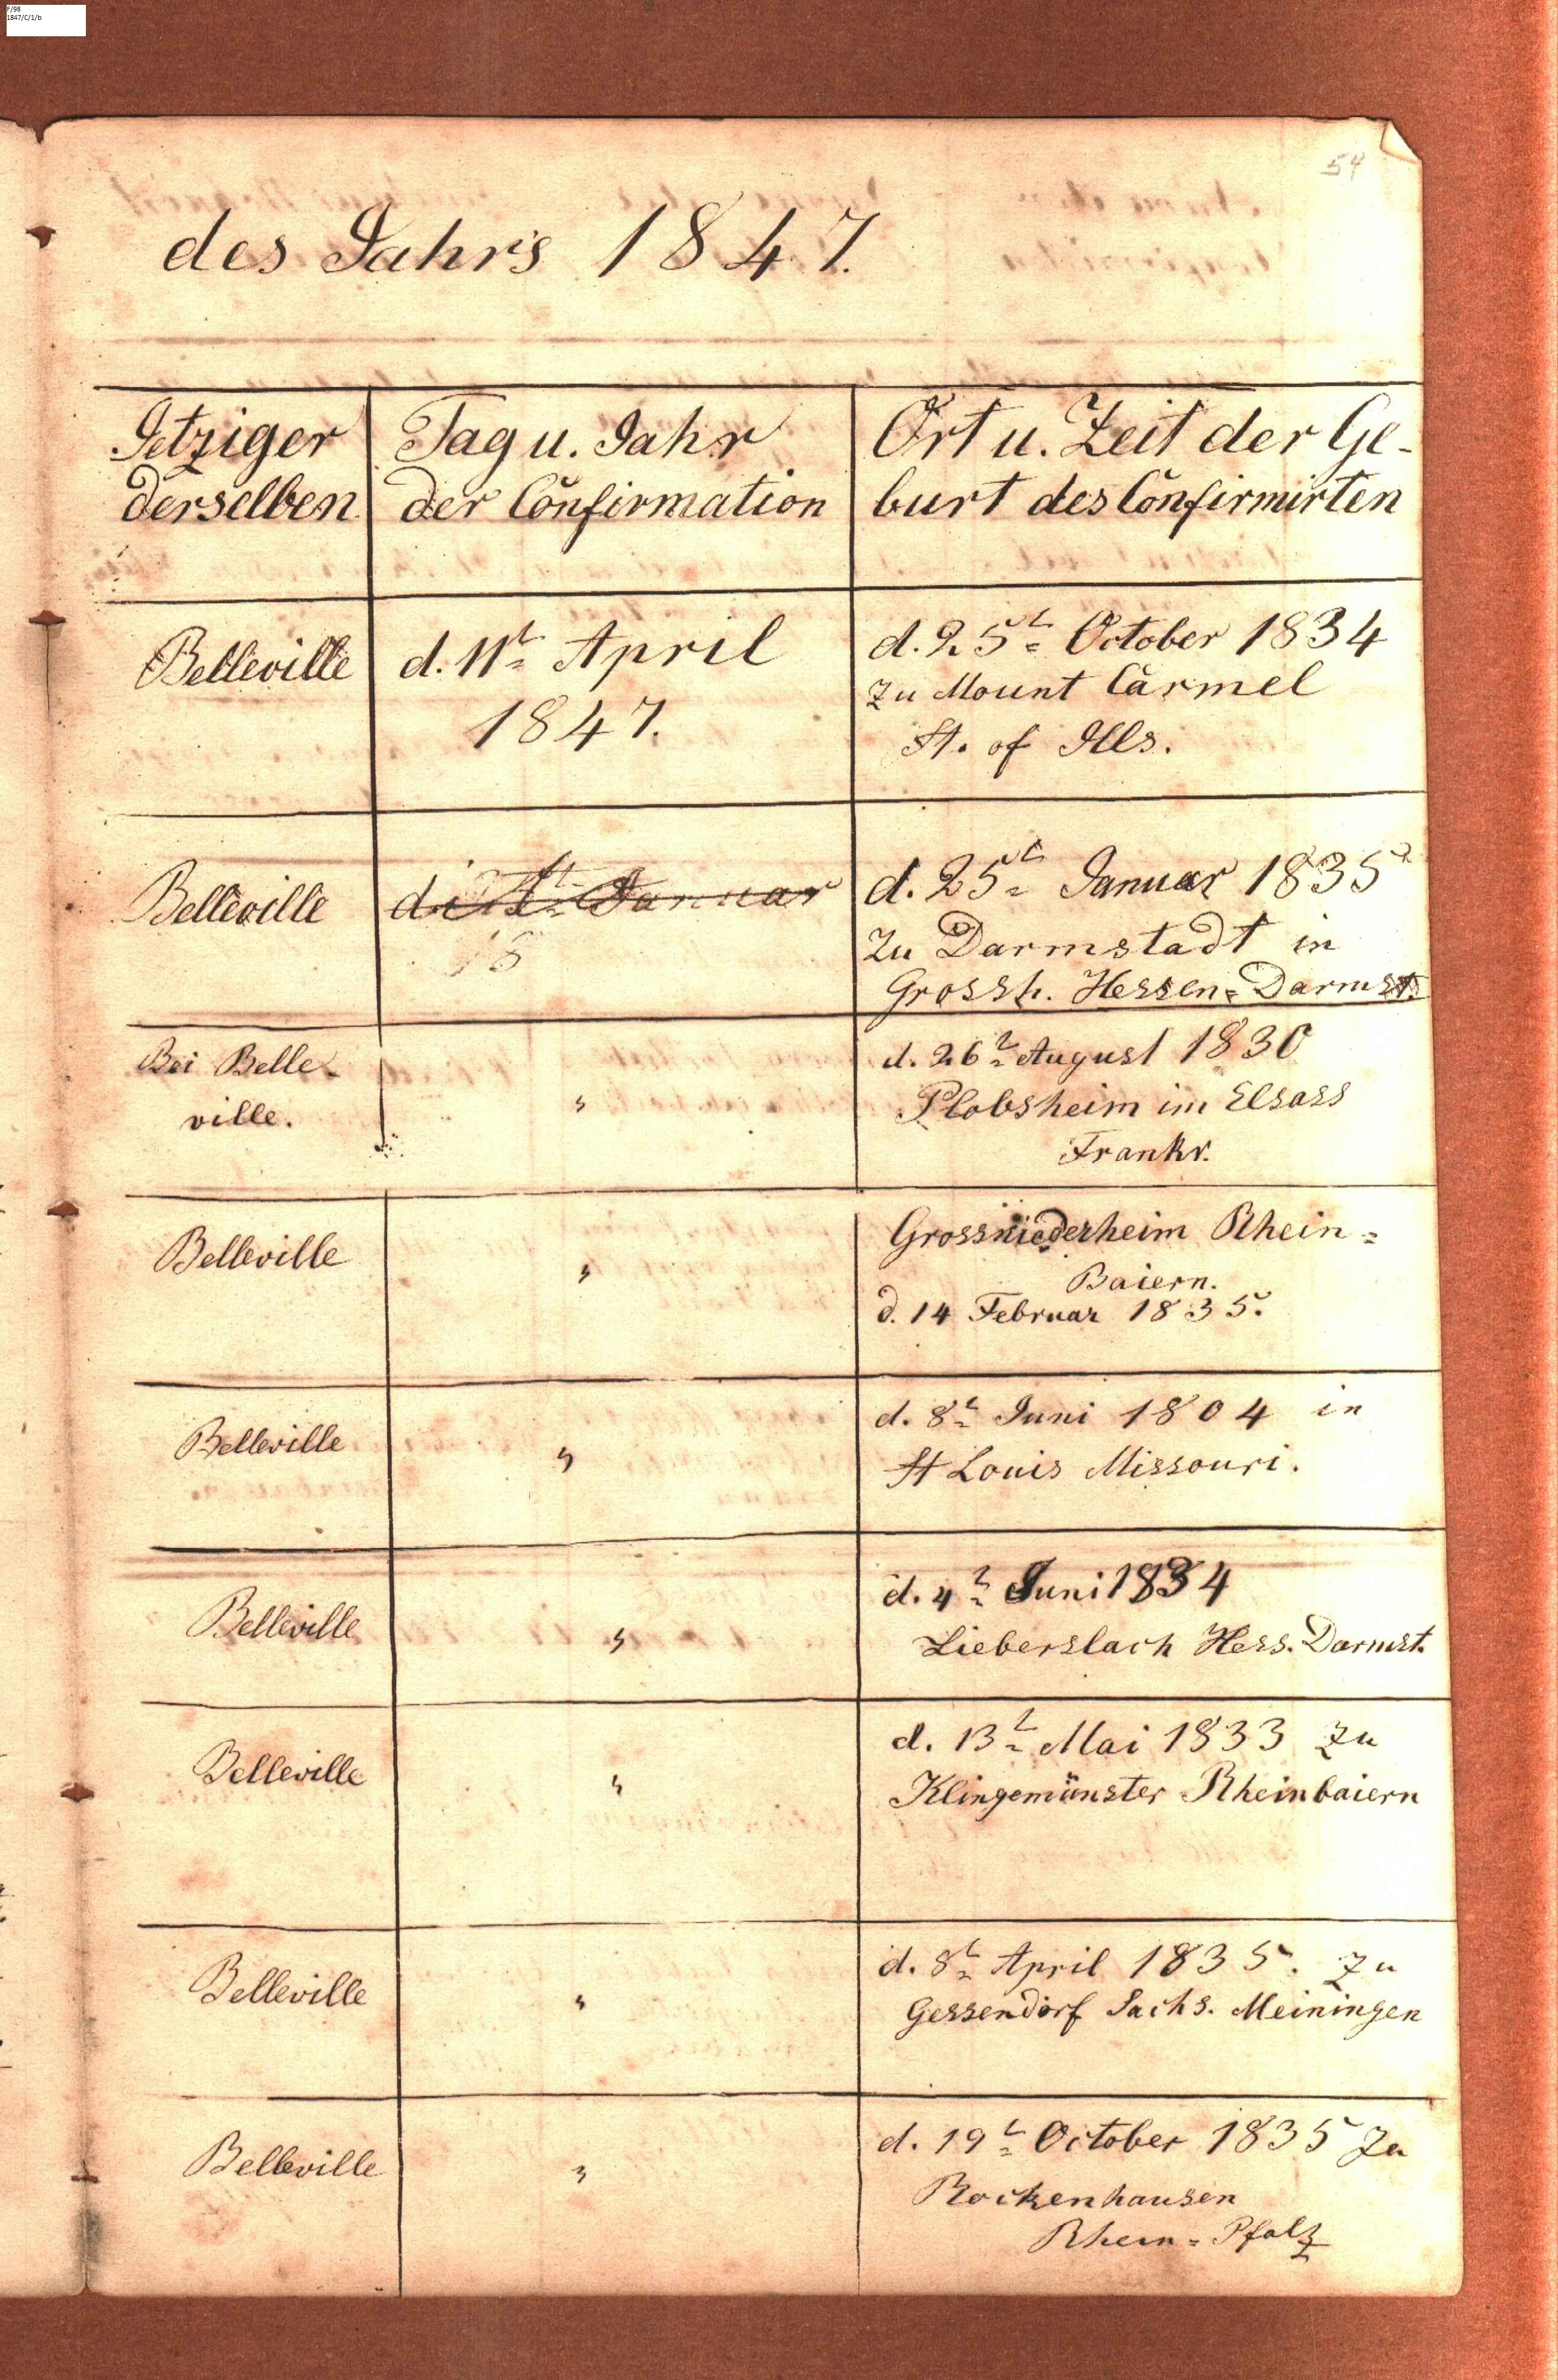 F/98
1847/C/1/b
54
des Jahrs 1847.
Jetziger
derselben
Tag u. Jahr
der Confirmation
Ort u. Zeit der Ge-
burt des Confirmirten
Belleville
d. 11t= April
1847.
d. 25t= October 1834
zu Mount Carmel
St. of Ills.
Belleville
Januar
18
d. 25t= Januar 1835
zu Darmstadt in
Grossh. Hessen=Darmst.
Bei Belle-
ville.
"
d. 26t= August 1830
Plobsheim im Elsass
Frankr.
Belleville
"
Grossniederheim Rhein=
Baiern.
d. 14 Februar 1835.
Belleville
"
d. 8t= Juni 1804 in
St Louis Missouri.
Belleville
"
d. 4t= Juni 1834
Lieberslach Hess. Darmst.
Belleville
"
d. 13t= Mai 1833 zu
Klingemünster Rheinbaiern
Belleville
"
d. 8t= April 1835. zu
Gessendorf Sachs. Meiningen
Belleville
"
d. 19t= October 1835 zu
Rockenhausen
Rhein=Pfalz